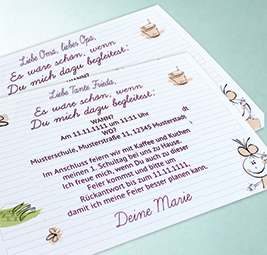 Liebe Oma, lieber Opa,
Es wäre schön, wenn
Du mich dazu begleitest:
Liebe Tante Frieda,
Es wäre schön, wenn
Du mich dazu begleitest:
WANN?
dt
Am 11.11.1111 um 11:11 Uhr
WO?
Musterschule, Musterstraße 11, 12345 Musterstadt
Im Anschluss feiern wir mit Kaffee und Kuchen
meinen 1. Schultag bei uns zu Hause.
Ich freue mich, wenn Du auch zu dieser
Feier kommst und bitte um
Rückantwort bis zum 11.11.1111,
damit ich meine Feier besser planen kann.
Deine Marie